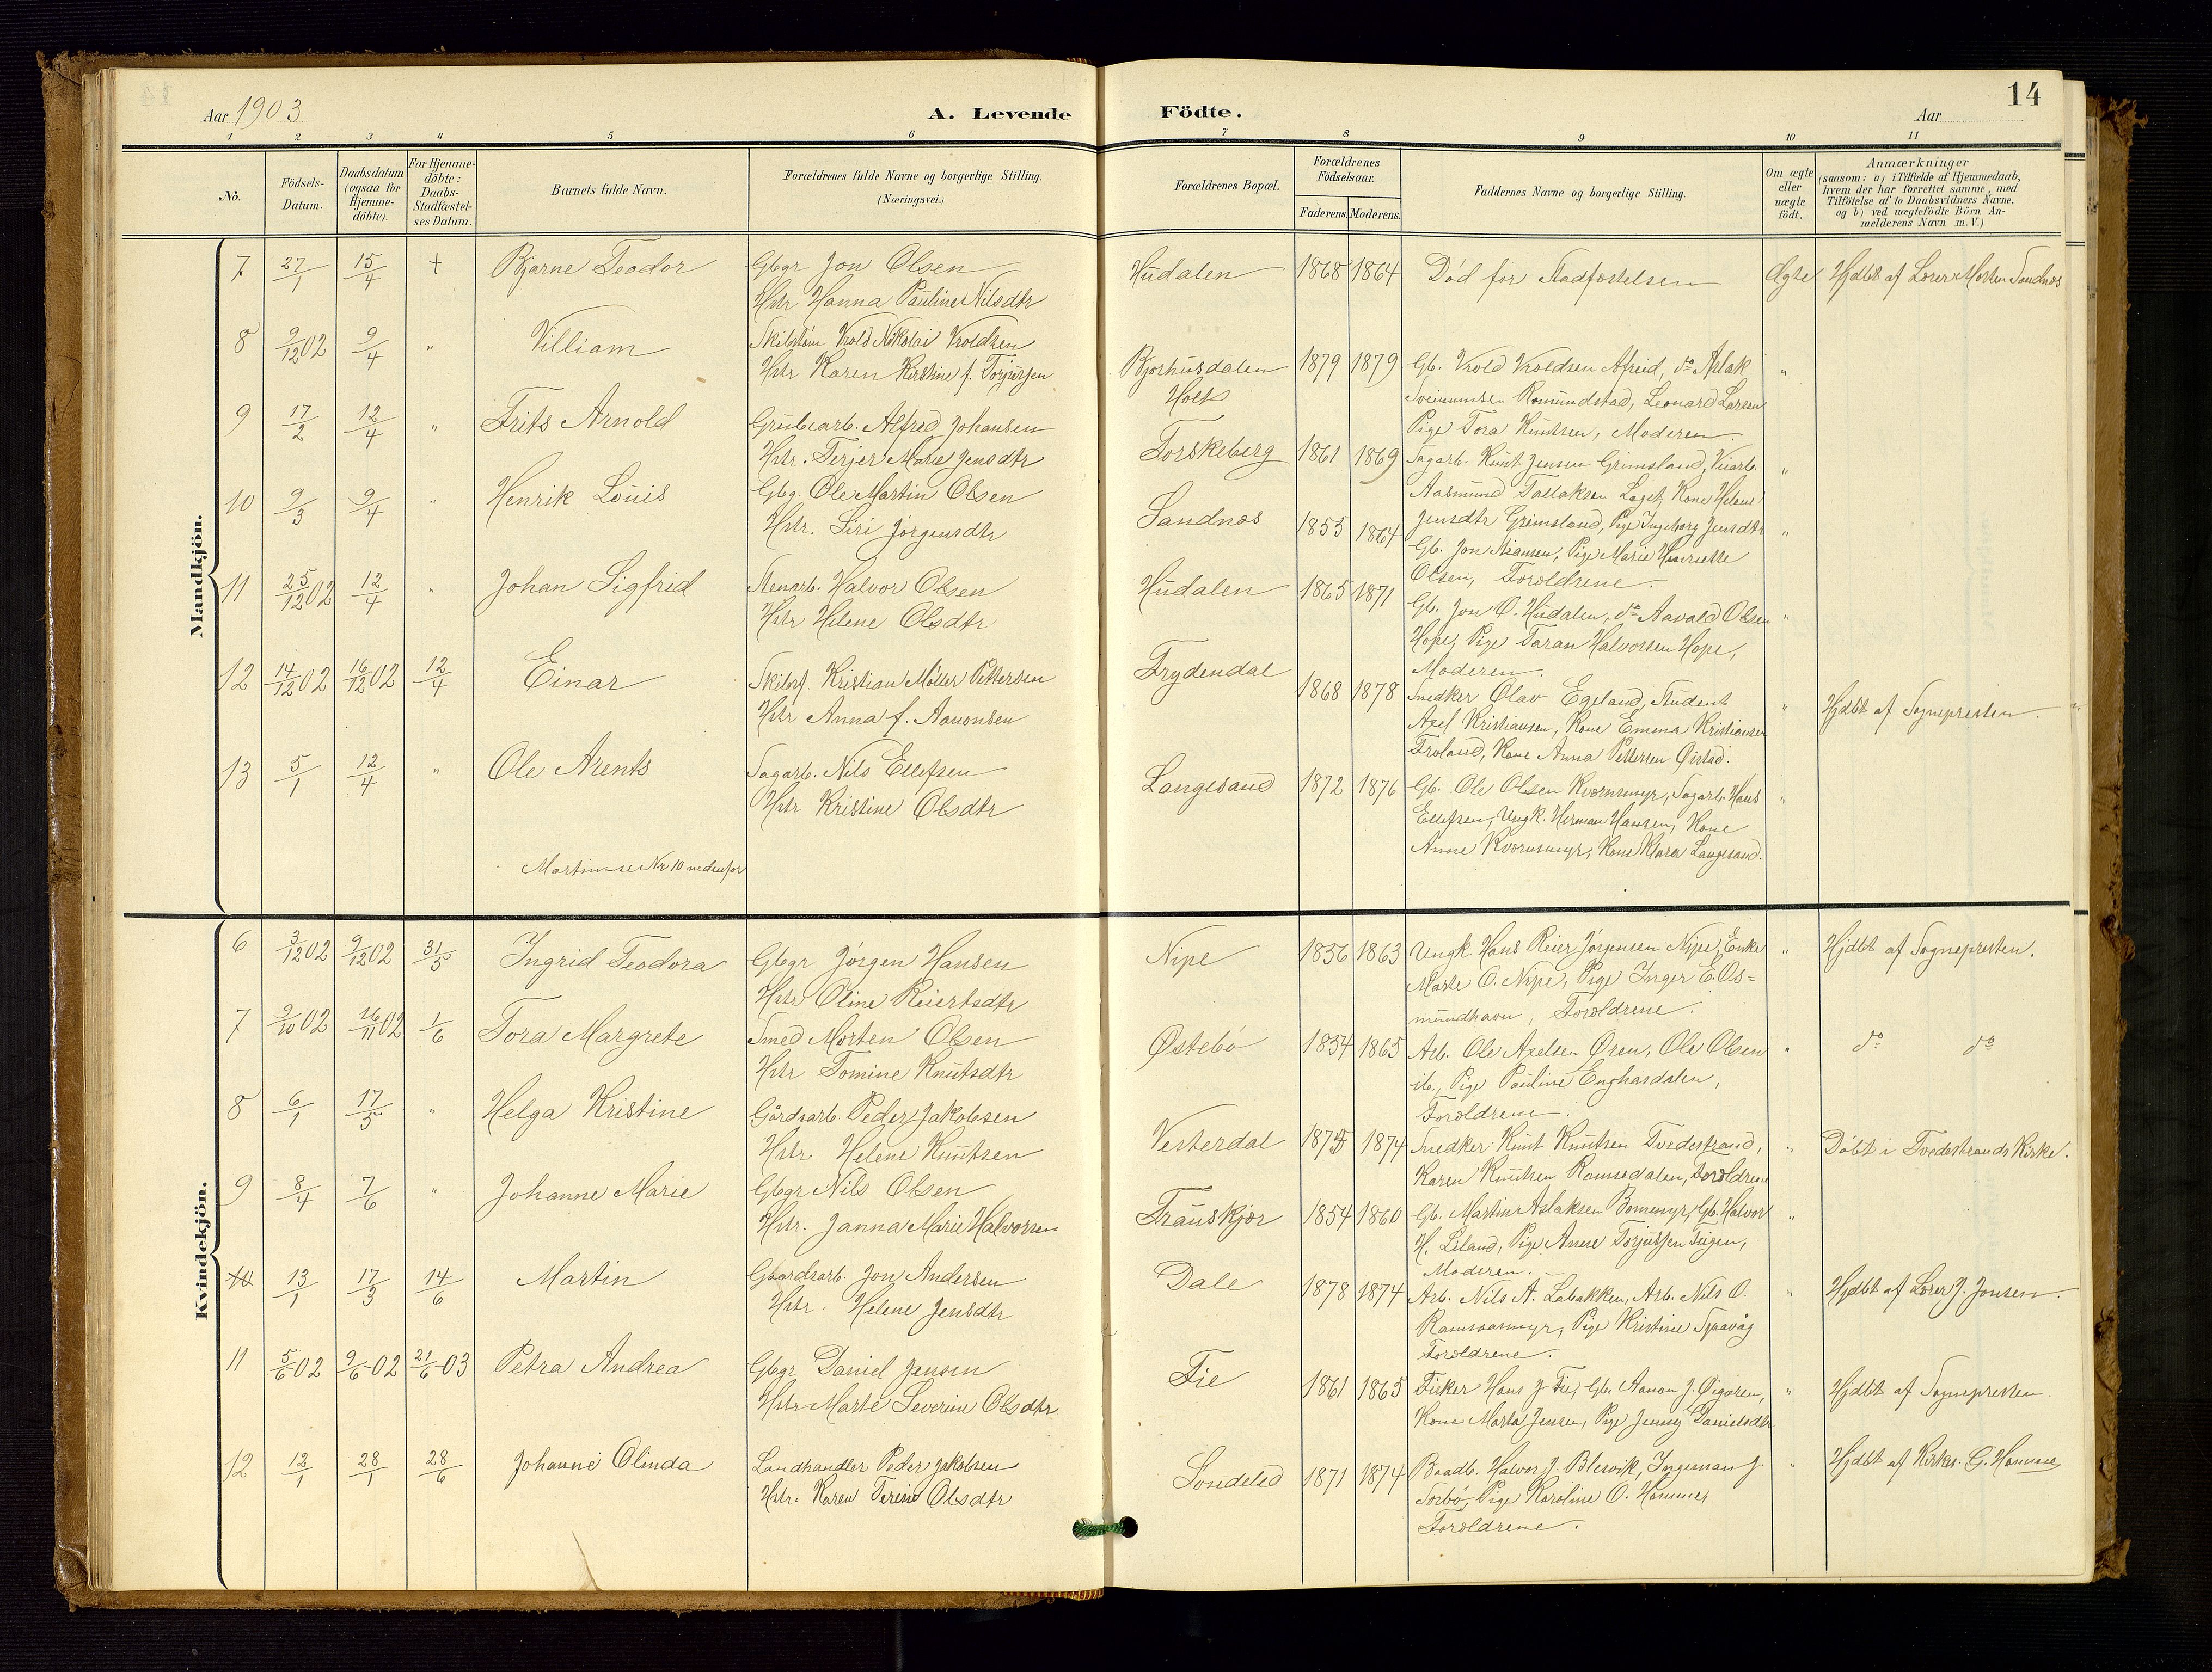 14
Aar 1903
A. Levende Födte.
Aar
1 2 3 4 5 6 7 8 9 10 11
No.
Födsels-Datum.
Daabsdatum (ogsaa for Hjemme-döbte).
For Hjemme-döbte: Daabs-Stadfæstel-ses Datum.
Barnets fulde Navn.
Forældrenes fulde Navne og borgerlige Stilling. (Næringsvei.)
Forældrenes Bopæl.
Forældrenes Födselsaar.
Faderens. Moderens.
Faddernes Navne og borgerlige Stilling.
Om ægte eller uægte födt.
Anmærkninger
(saasom: a) i Tilfælde af Hjemmedaab,
hvem der har forrettet samme, med
Tilföielse af to Daabsvidners Navne,
og b) ved uægtefödte Börn An-
melderens Navn m. V.)
Mandkjön.
7 27/1 15/4 + Bjarne Teodor Gbgr Jon Olsen Hudalen 1868 1864 Död for Stadfæstelsen Ægte Hjdbt af Lærer Morten Sandnæs
Hstr Hanna Pauline Nilsdtr
8 9/12 02 9/4 " Villiam Vrold Nikolai Vroldsen
Hstr Karen Kirstine f. Torjusen Bjorhusdalen 1879 1879 Gb. Vrold Vroldsen do Aslak "
Holt Romundstad, Leonard Larsen
Pige Tora Knutsen, Moderen.
9 17/2 12/4 " Frits Arnold Grubearb. Alfred Johansen
Hstr. Terjer Marie Jensdtr Forskeberg 1861 1869 Sagarb. Knut Jensen Grimsland, "
Aasmund Tallaksen Kone Helene
Jensdtr Grimsland, Pige Ingeborg Jensdtr
10 9/3 9/4 " Henrik Louis Gbg. Ole Martin Olsen
Hstr. Siri Jörgensdtr Sandnæs 1855 1864 "
Gb. Jon Pige Marie Henriette
Olsen, Forældrene.
11 25/12 02 12/4 " Johan Sigfrid Stenarb. Halvor Olsen Hudalen 1865 1871
Hstr Helene Olsdtr Gb. Jon O. Hudalen, do Aavald Olsen "
Hope, Pige Taran Halvorsen Hope,
Moderen.
12 14/12 02 16/12 02 12/4 Einar Skibsf. Kristian Möller Pettersen Frydendal
1868 1878 Snedker Olav Egeland, Student " Hjdbt af Sognepresten. "
Hstr Anna f. Aanonsen Axel Kristiansen, Kone Emma Kristiansen
Froland, Kone Anna Pettersen
13 5/1 12/4 " Ole Arents Sagarb. Nils Ellefsen Langesand 1872 1876 Gb. Ole Olsen Kværnsmyr, Sagarb. Hans "
Hstr Kristine Olsdtr Ellefsen, Ungk. Herman Hansen, Kone
Anne Kværnsmyr, Kone Klara Langesand.
Martin se Nr 10 nedenfor
Kvindekjön.
6 3/12 02 9/12 02 31/5 Ingrid Teodora Gbgr Jörgen Hansen Nipe 1856 1863 Ungk. Hans Reier Jörgensen Nipe, Enke " Hjdbt af Sognepresten.
Hstr Oline Reiertsdtr Marte O. Nipe, Pige Inger E. Os=
mundhavn, Forældrene.
7 9/10 02 16/11 02 1/6 Tora Margrete Smed Morten Olsen Östebö 1854 1865 Arb. Ole Axelsen Ören, Ole Olsen " do do
Hstr Tomine Knutsdtr ib., Pige Pauline Enghasdalen,
Forældrene.
8 6/1 17/5 " Helga Kristine Gårdsarb. Peder Jakobsen
Hstr. Helene Knutsen Vesterdal 1874 Snedker Knut Knutsen Tvedestrand, " Döbt i Tvedestrands Kirke.
Karen Knutsen Ramsedalen, Forældrene
9 8/4 7/6 " Johanne Marie Gbgr Nils Olsen
Hstr. Janna Marie Halvorsen Trauskjær 1854 1860 Gb. Martin Aslaksen Bomemyr, Gb. Halvor "
H. Leland, Pige Anne Torjussen
Moderen.
10 13/1 17/3 14/6 Martin Gaardsarb. Jon Andersen Dale 1878 1874 Arb. Nils A. Labakken, Arb. Nils O. " Hjdbt af Lærer J. Jonsen.
Hstr. Helene Jensdtr Ramsaasmyr, Pige Kristine
Forældrene.
11 5/6 02 9/6-02 21/6-03 Petra Andrea Gbgr Daniel Jensen Fie 1861 1865 Fisker Hans J. Fie, Gb. Aanon J. Öigaren, " Hjdbt af Sognepresten.
Hstr Marte Severine Olsdtr Kone Marta Jensen, Pige Jenny Danielsdtr
12 12/1 28/1 28/6 Johanne Olinda Landhandler Peder Jakobsen Söndeled 1871 1874 Baadb. Halvor J. Blesvik, Ingeman J. " Hjdbt af Kirkes. G. Hammer
Hstr. Karen Terine Olsdtr Sorbö, Pige Karoline O. Hammer
Forældrene.